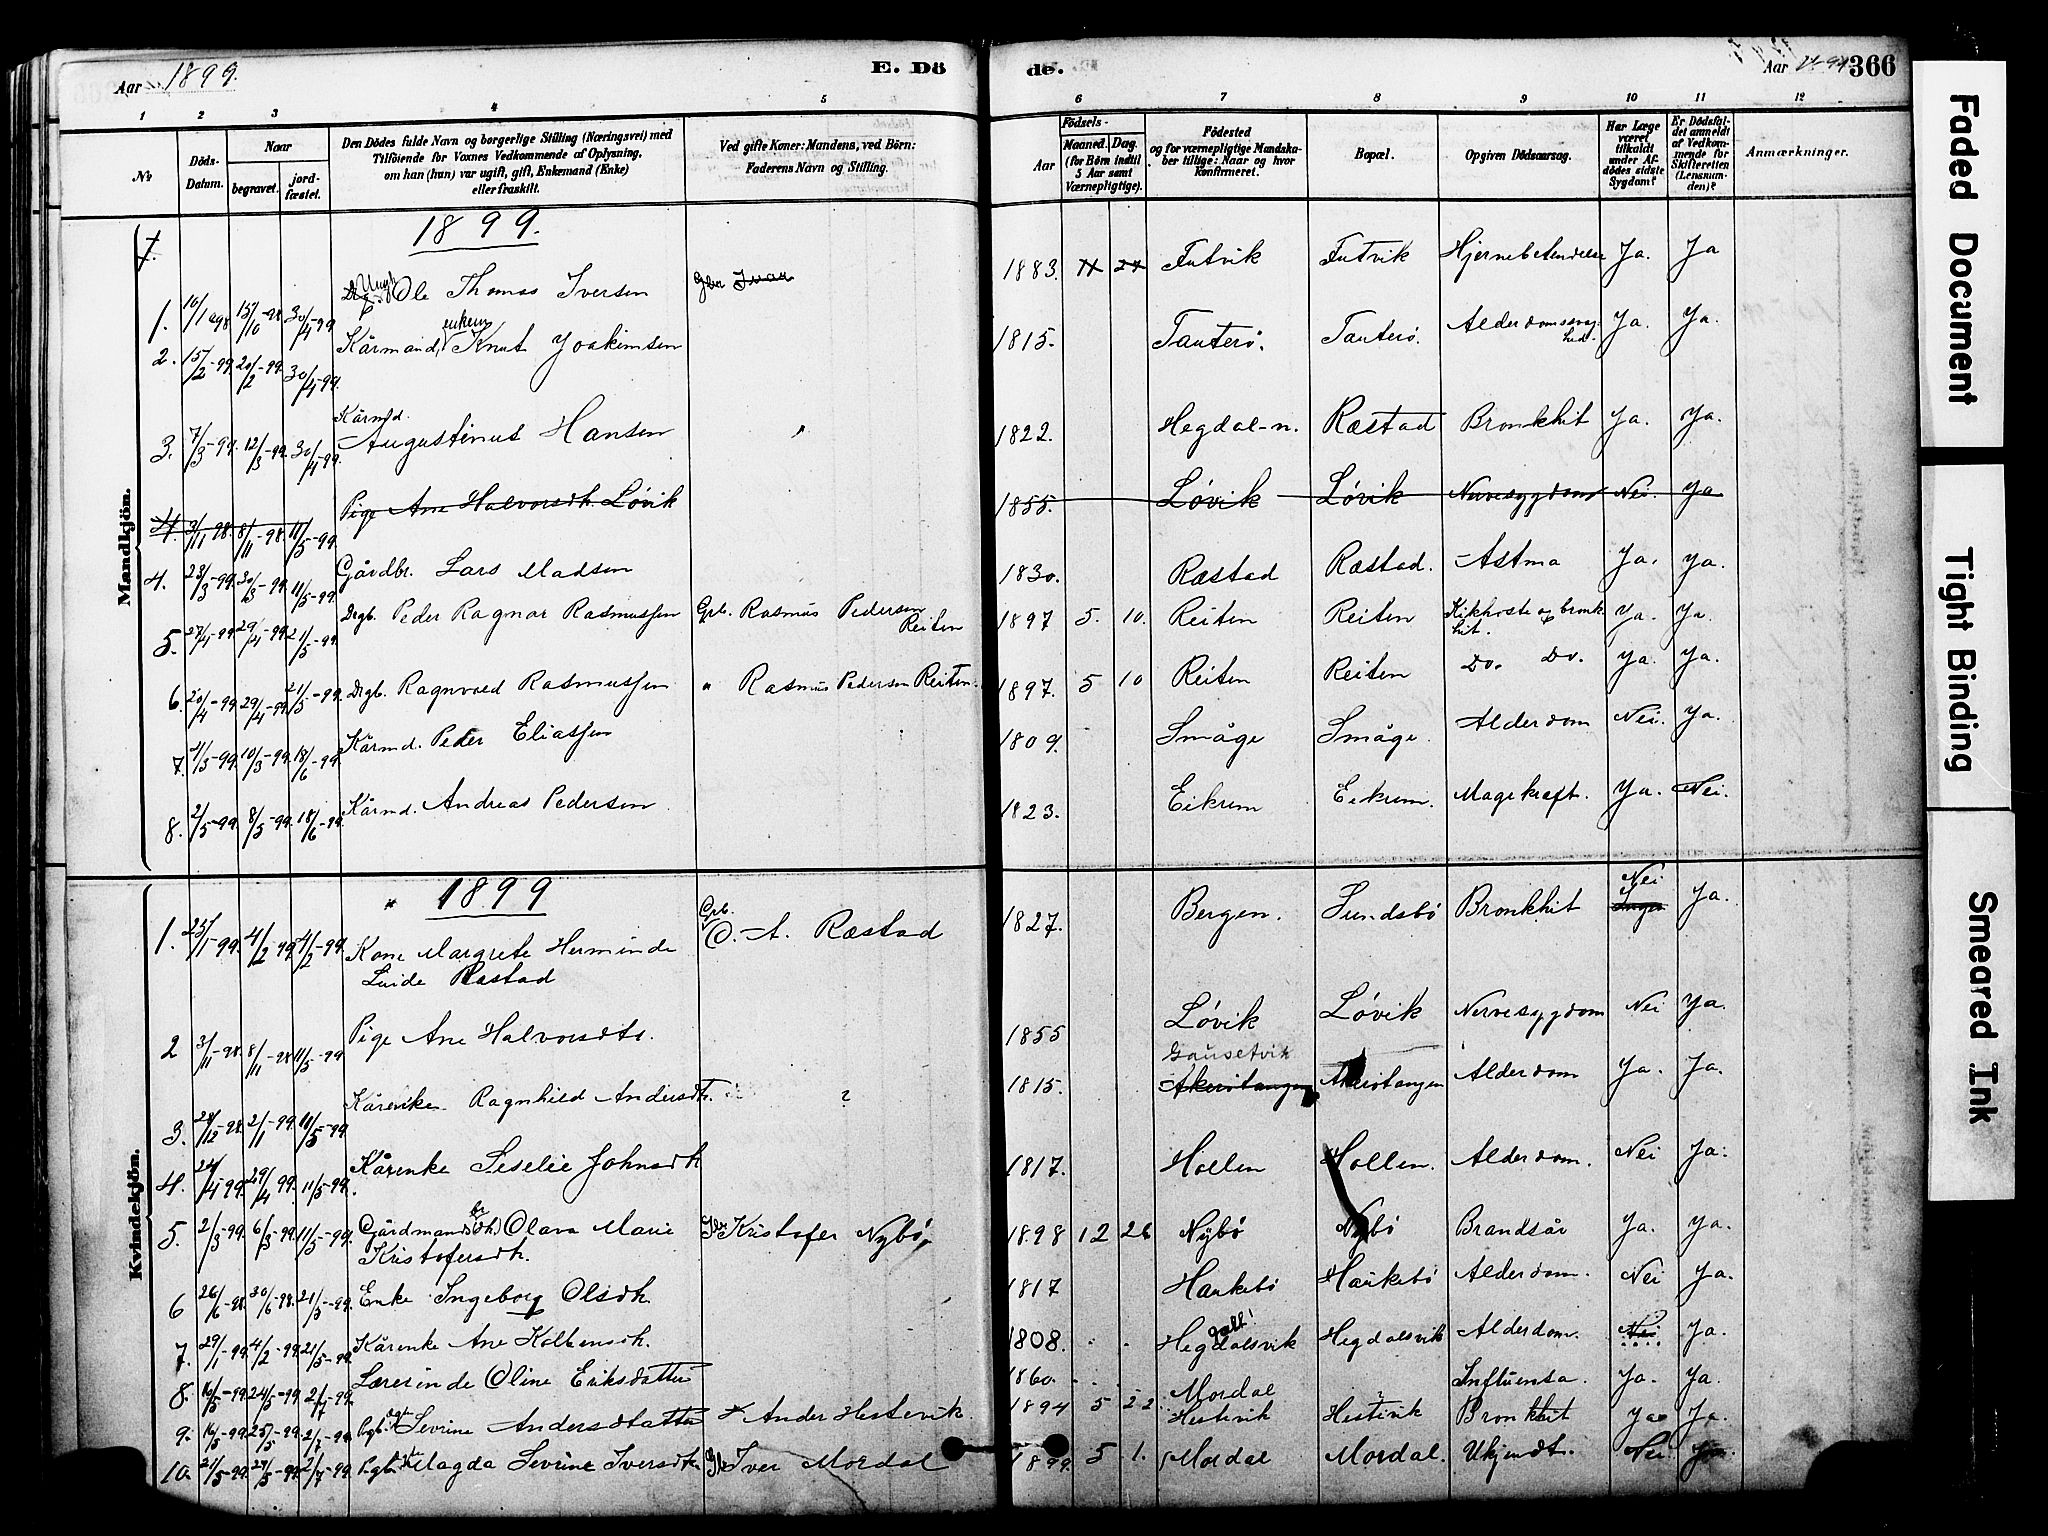 Aar 1899.
E. Dö
de.
Aar 366
1 2 3 4 5
6 7 8 9 10 11 12
No
Döds-Datum.
Naar
begravet.
jord-fæstet.
Den Dödes fulde Navn og borgerlige Stilling (Næringsvei) med
Tilföiende for Voxnes Vedkommende af Oplysning,
om han (hun) var ugift, gift, Enkemand (Enke)
eller fraskilt.
Ved gifte Koner: Mandens, ved Börn:
Faderens Navn og Stilling.
Födsels-
Aar
Maaned. Dag.
(for Børn indtil
5 Aar samt
Værnepligtige).
Födested
og for værnepligtige Mandska-
ber tillige: Naar og hvor
konfirmeret.
Bopæl.
Opgiven Dödsaarsag.
Har Læge
været
tilkaldt
under Af-
dödes sidste
Sygdom?
Er Dödsfal-
det anmeldt
af Vedkom-
mende for
Skifteretten
(Lensman-
den)?
Anmærkninger.
Mandkjön.
1899.
1. 30/4-99 Ole Thomas Iversen Gbr Ivar 1883. Futvik Futvik Hjernebetendelse Ja. Ja
2. 15/2-99. 20/2-99. 30/4-99. Kårmand, enkem Knut Joakimsen 1815. Tauterö. Tauterö. Ja. Ja.
3. 7/3-99. 12/3-99. 30/4-99. Kårmd. Augustinus Hansen " 1822. Hegdal-n. Ræstad Bronkhit Ja. Ja.
4. 3/11-98. 8/11-98. 11/5-99. Pige Ane Halvorsdtr. Lövik 1855. Lövik Lövik Nervesygdom Nei. Ja
4. 23/3-99. 30/3-99. 11/5-99. Gårdbr. Lars Madsen 1830. Ræstad Ræstad. Astma Ja. Ja.
5. 27/4-99 29/4-99. 21/5-99. Drgb. Peder Ragnar Rasmussen Grb. Rasmus Pedersen Reiten 1897 5. 10. Reiten Reiten Kikhoste og bronkhit. Ja. Ja.
6. 20/4-99 29/4-99. 21/5-99. Drgb. Ragnvald Rasmussen " Rasmus Pedersen Reiten. 1897. 5 10 Reiten Reiten Do. Do. Ja. Ja.
7. 4/3-99. 10/3-99. 18/6-99. Kårmd. Peder Eliassen 1809. Småge Småge. Alderdom Nei. Ja.
8. 2/5-99. 8/5-99. 18/6-99. Kårmd. Andreas Pedersen 1823. Eikrem Eikrem. Magekræft. Ja. Nei.
Kvindekjön.
" 1899
1. 25/1-99. 4/2 99 4/2-99. Kone Margrete Herminde
Ræstad Grb. O. A. Ræstad 1827. Bergen. Sundsbö Bronkhit Nei Ja.
2 3/11-98. 8/11-98 11/5-99 Pige Ane Halvorsdtr. 1855 Lövik Lövik Nervesygdom Nei Ja.
3. 28/12-98. 2/1-99. 11/5-99 Kårenke. Ragnhild Andersdtr. ? 1815. Gausetvik Akerötangen Akerötangen Alderdom Ja. Ja.
4. 24/4 99. 29/4 99. 11/5-99. Kårenke Seselie Johnsdtr 1817. Hollen Hollen. Alderdom. Nei Ja.
5. 2/3-99. 6/3-99. 11/5-99. Olava Marie
Kristofersdtr. Kristofer Nybö, 1898 12 26 Nybö Nybö Brandsår Ja. Ja.
6 26/6-98. 30/6-98. 21/5-99. Enke Ingeborg Olsdtr. 1817 Haukebö Haukebö Alderdom. Nei Ja.
7. 29/1-99. 4/2-99. 21/5-99. Kårenke Ane Kolbensdtr. 1808. Hegdalsvik Hegdalsvik Alderdom. Nei Ja.
8. 16/5-99. 24/5-99. 2/7-99. Lærerinde Oline Eriksdatter 1860. Mordal Influensa. Ja. Ja.
9. 16/5-99. 25/5-99. 2/7-99. Sevrine Andersdatter Ander Hestevik. 1894 5 22. Hestevik Hestevik Bronkhit Ja Ja.
10. 21/5-99. 27/5-99. 2/7-99. Magda Sevrine Iversdtr. Iver Mordal 1899. 5 1. Mordal Mordal. Ukjendt. Nei Ja
Faded Document
Tight Binding
Smeared Ink